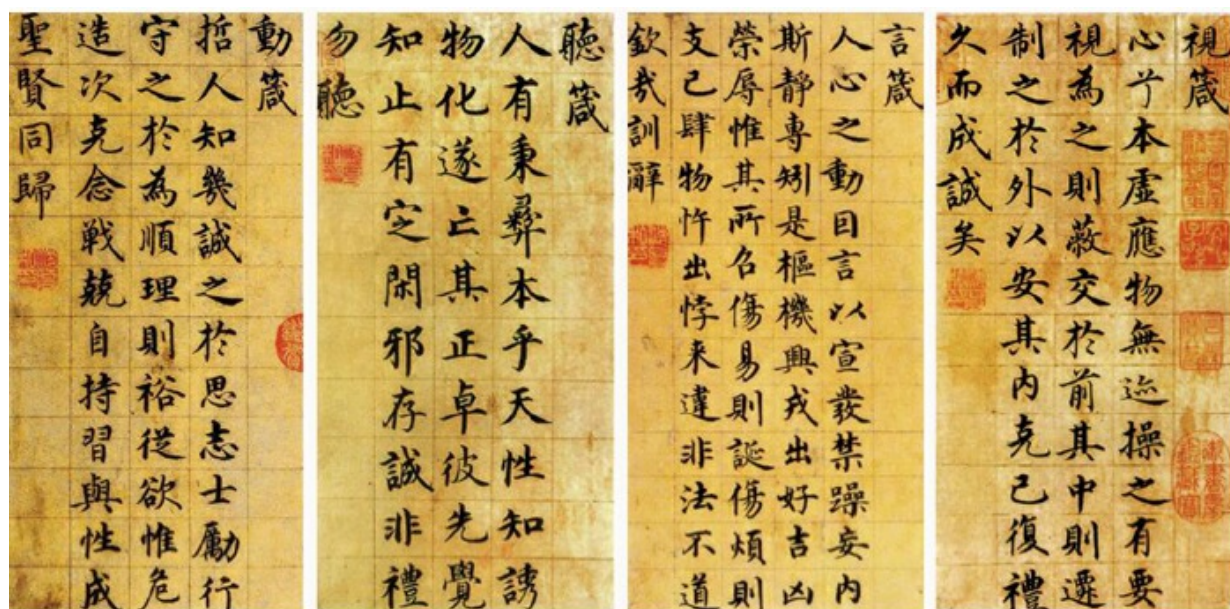 視箴
心兮本虛應物無迹操之有要
視為之則蔽交於前其中則遷
制之於外以安其內克己復禮
久而成誠矣
言箴
人心之動因言以宣發禁躁妄內
斯靜專矧是樞機興戎出好吉凶
榮辱惟其所召傷易則誕傷煩則
支己肆物忤出悖来違非法不道
欽哉訓辭
聽箴
人有秉彝本乎天性知誘
物化遂亡其正卓彼先覺
知止有定閑邪存誠非禮
勿聽
動箴
哲人知幾誠之於思志士勵行
守之於為順理則裕從欲惟危
造次克念戰兢自持習與性成
聖賢同歸